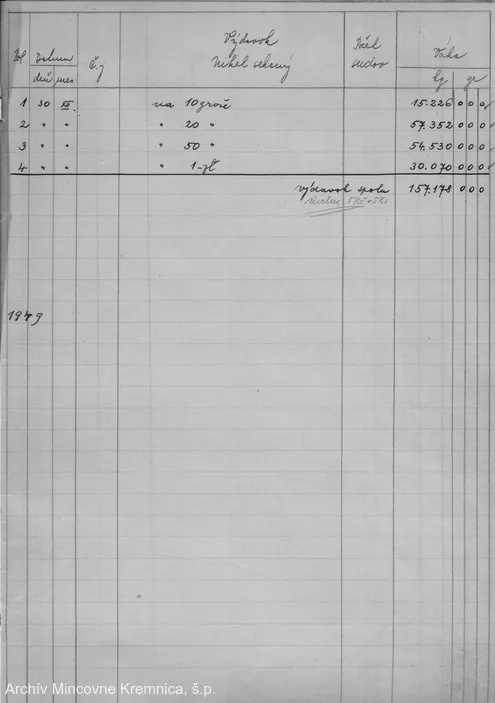 Pol Datum deň mes Č.j Výdavok Nikel sekaný Počet sudov Váha kg gr
1 30 XII. na 10 groše 15.226 0 0 0
2 " " " 20 " 57.352 0 0 0
3 " " " 50 " 54.530 0 0 0
4 " " " 1-zł 30.070 0 0 0
výdavok spolu 157.178 0 0 0
1949
Archív Mincovne Kremnica, š.p.